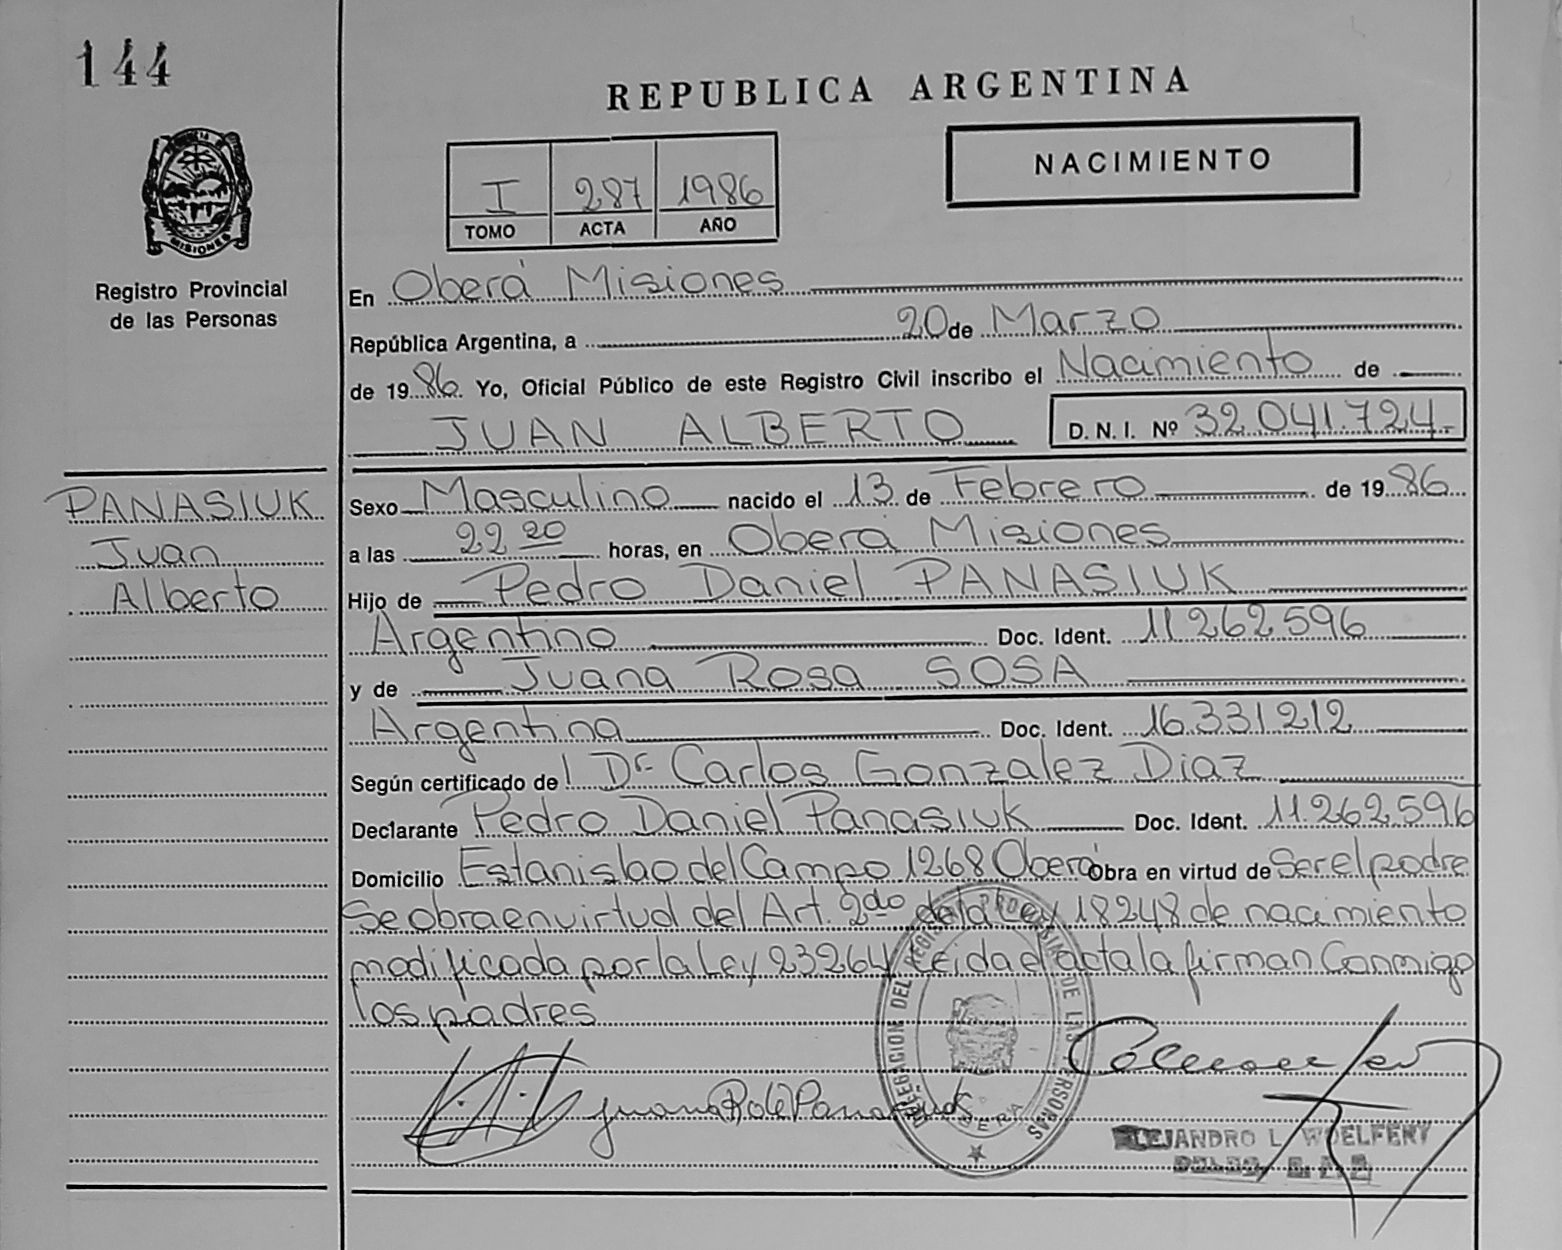 144
REPUBLICA ARGENTINA
NACIMIENTO
I 287 1986
TOMO ACTA AÑO
MISIONES
Registro Provincial
de las Personas
En Oberá Misiones
República Argentina, a 20 de Marzo
de 1986. Yo, Oficial Público de este Registro Civil inscribo el Nacimiento de
JUAN ALBERTO D. N. I. Nº 32.041.724.
PANASIUK
Juan
Alberto
Sexo Masculino nacido el 13 de Febrero de 1986
a las 22 20 horas, en Oberá Misiones
Hijo de Pedro Daniel PANASIUK
Argentino Doc. Ident. 11.262.596
y de Juana Rosa SOSA
Argentina Doc. Ident. 16.331.212
Según certificado de Dr. Carlos Gonzalez Diaz
Declarante Pedro Daniel Panasiuk Doc. Ident. 11.262.596
Domicilio Estanislao del Campo 1268 Oberá Obra en virtud de Ser el padre
Se obra en virtud del Art. 2do de la Ley 18248 de nacimiento
modificada por la Ley 23264 Leida el acta la firman Conmigo
los padres
DELEGACION DEL REGISTRO PROVINCIAL DE LAS PERSONAS
OBERA
ALEJANDRO L. WOELFERT